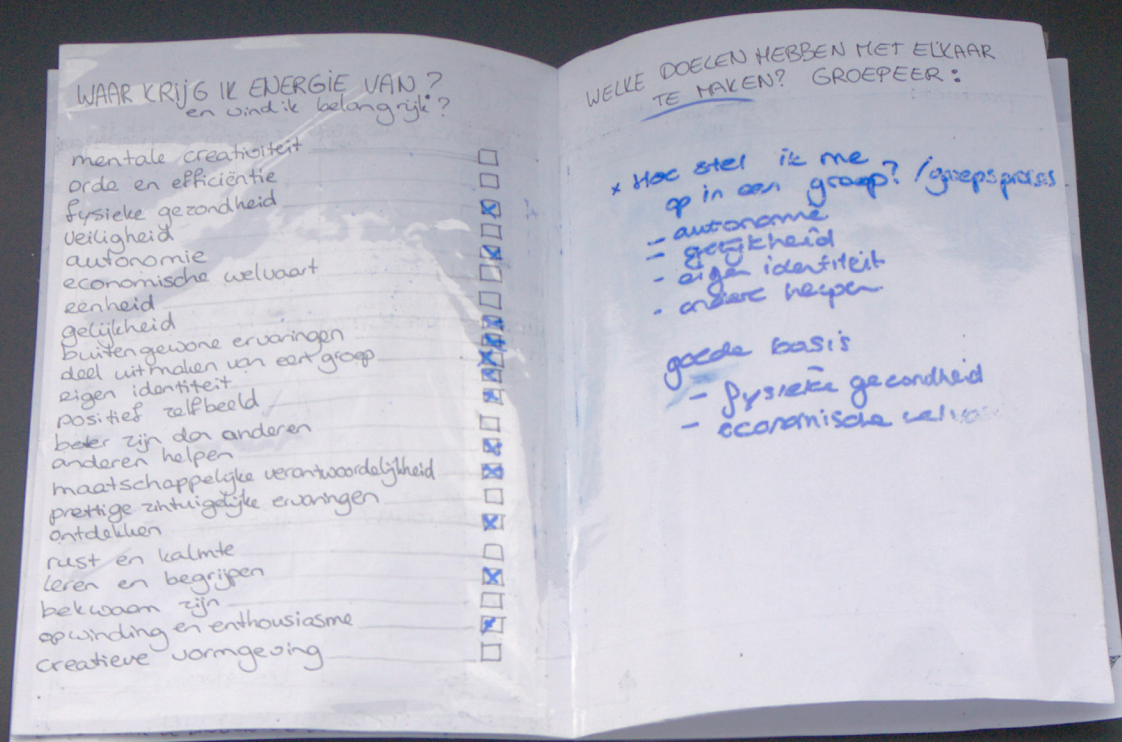 WAAR KRIJG IK ENERGIE VAN?
en vind ik belangrijk?
mentale creativiteit
orde en efficiëntie
fysieke gezondheid
veiligheid
autonomie
economische welvaart
eenheid
gelijkheid
buitengewone ervaringen
deel uitmaken van een groep
eigen identiteit
positief zelfbeeld
beter zijn dan anderen
anderen helpen
maatschappelijke verantwoordelijkheid
prettige zintuigelijke ervaringen
ontdekken
rust en kalmte
leren en begrijpen
bekwaam zijn
opwinding en enthousiasme
creatieve vormgeving
WELKE DOELEN HEBBEN MET ELKAAR
TE MAKEN? GROEPEER:
x Hoe stel ik me
op in een groep? /groepsproces
- autonomie
- gelijkheid
- eigen identiteit
- andere helpen
goede basis
- fysieke gezondheid
- economische